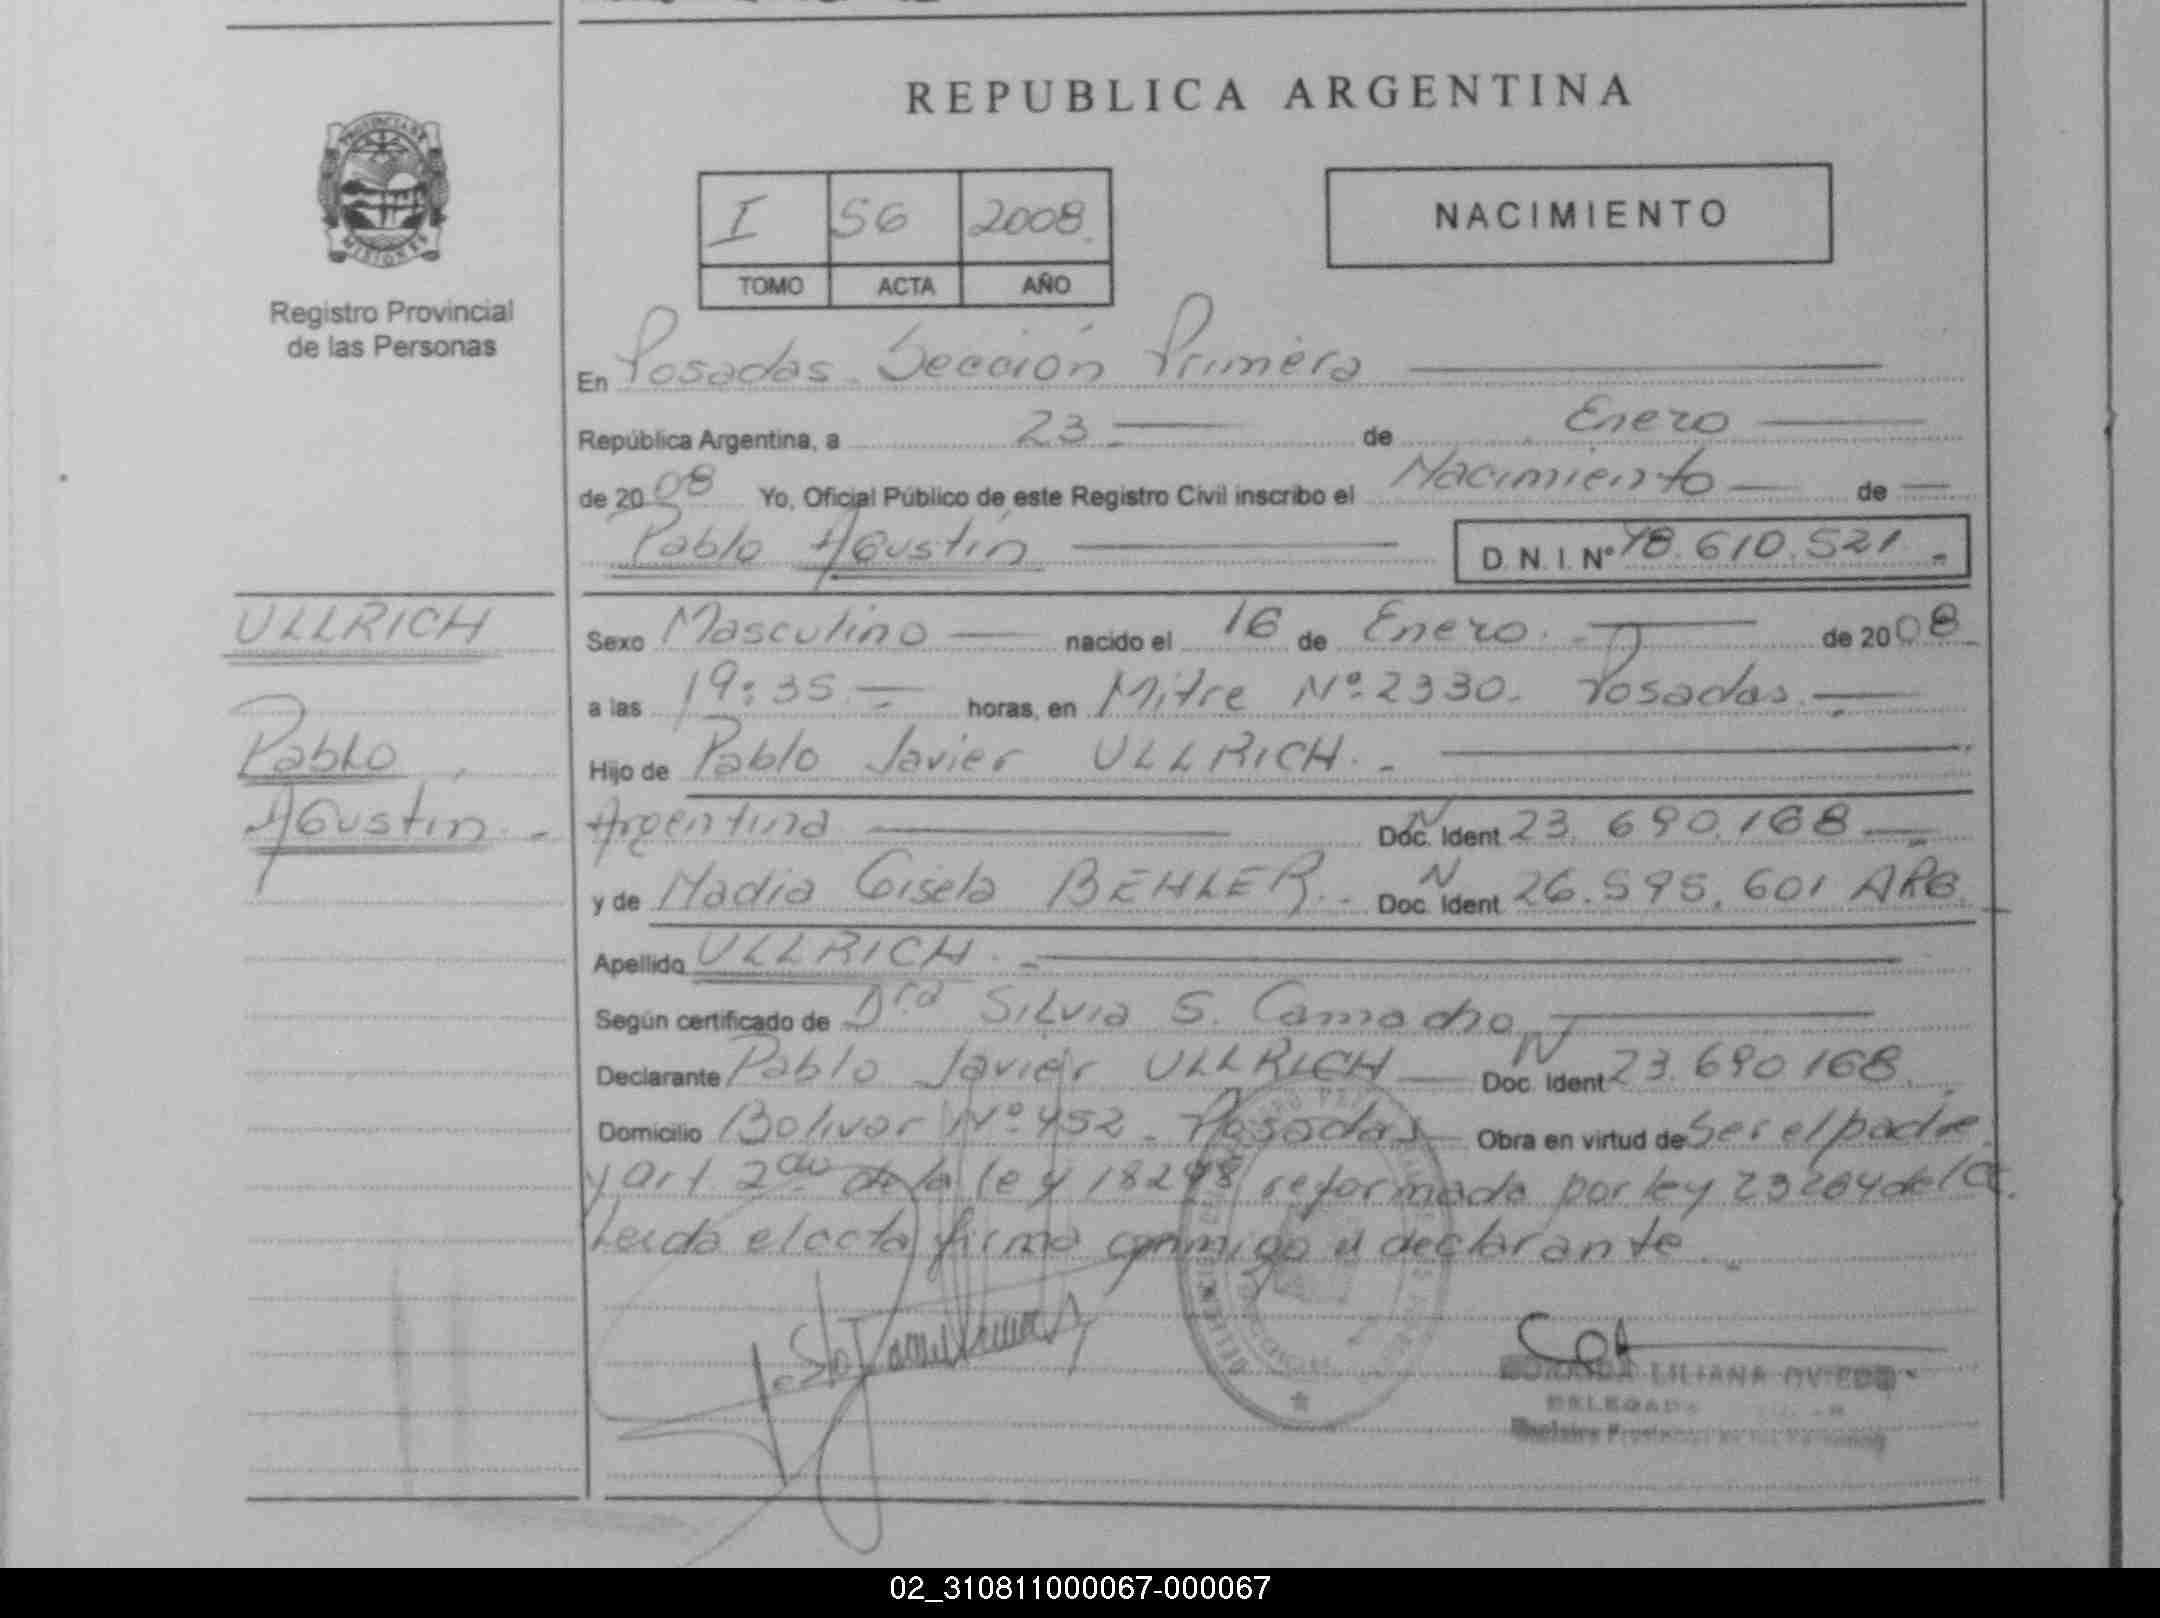 REPUBLICA ARGENTINA
PROVINCIA DE
MISIONES
Registro Provincial
de las Personas
I 56 2008
TOMO ACTA AÑO
NACIMIENTO
En Posadas Sección Primera
República Argentina, a 23 de Enero
de 2008 Yo, Oficial Público de este Registro Civil inscribo el Nacimiento de
Pablo Agustín D. N. I. Nº 48.610.521
ULLRICH
Pablo
Agustin
Sexo Masculino nacido el 16 de Enero de 2008
a las 19:35 horas, en Mitre Nº 2330. Posadas
Hijo de Pablo Javier ULLRICH
Argentina Doc. Ident N 23.690.168
y de Nadia Gisela BEHLER Doc. Ident N 26.595.601 ARG.
Apellido ULLRICH
Según certificado de Dra Silvia S. Camacho
Declarante Pablo Javier ULLRICH Doc. Ident N 23.690.168
Domicilio Bolivar Nº 452 Posadas Obra en virtud de Ser el padre
y art. 2do de la ley 18248 reformada por ley 23264 del CC.
Leida el acta firma conmigo el declarante
LILIANA OVIEDO
DELEGADA
02_310811000067-000067